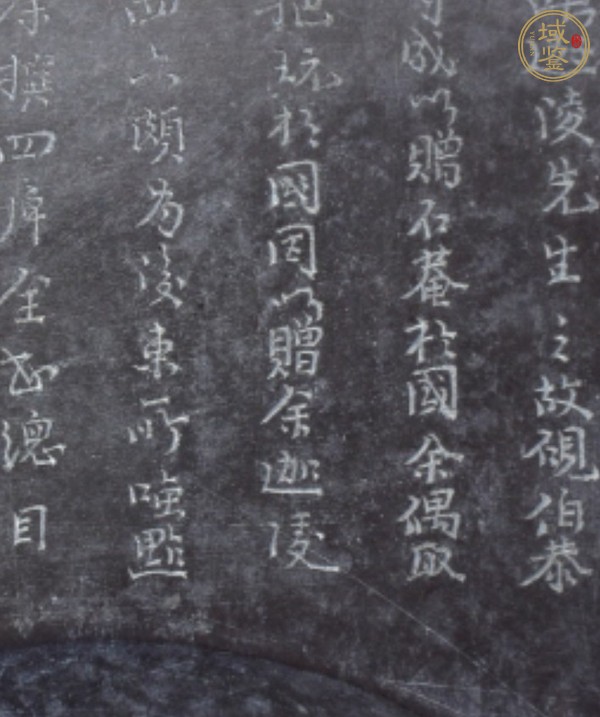 陵先生之故硯伯恭
成以贈石菴於國余偶取
玩於國因以贈余迦陵
六頗為後東所嗤點
撰四庫全書總目
域鑒